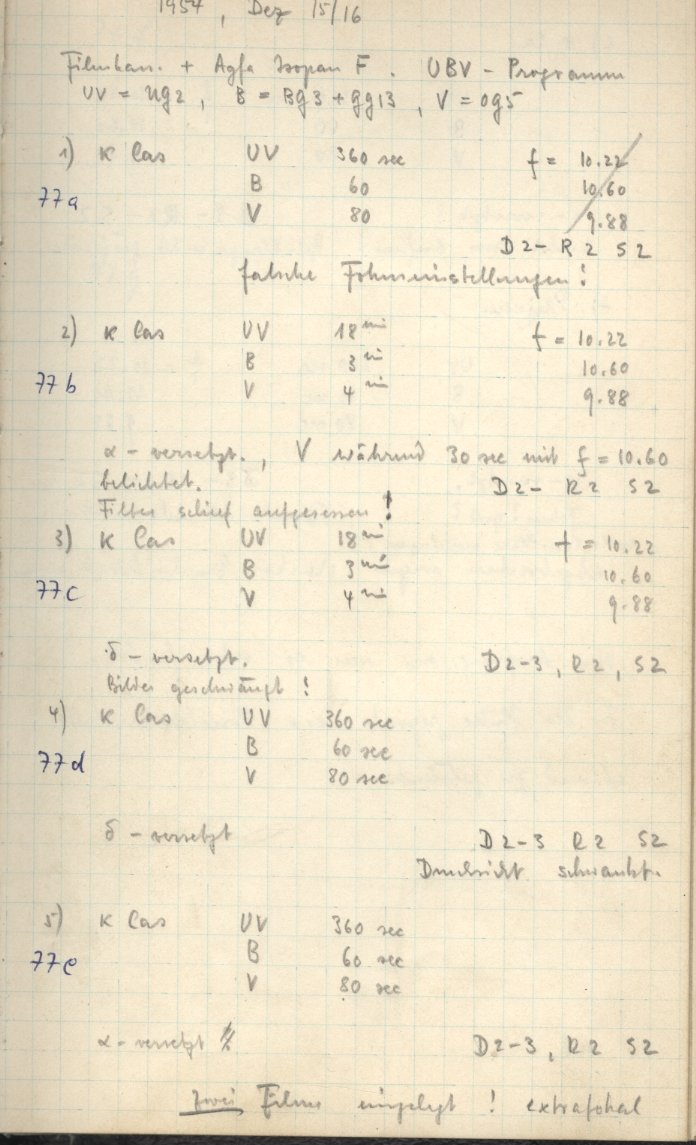 1954, Dez 15/16
Filmkam. + Agfa Isopan F. UBV - Programm
UV = ug2, B = Bg3 + gg13, V = og5
1) κ Cas UV 360 sec f = 10.22
77a B 60 10.60
V 80 9.88
D2- R2 S2
falsche Fokuseinstellungen!
2) κ Cas UV 18 min f = 10.22
77b B 3 min 10.60
V 4 min 9.88
α - versetzt., V während 30 sec mit f = 10.60
belichtet. D2- R2 S2
Filter schief aufgesessen!
3) κ Cas UV 18 min f = 10.22
77c B 3 min 10.60
V 4 min 9.88
δ - versetzt. D2-3, R2, S2
Bilder geschwänzt!
4) κ Cas UV 360 sec
77d B 60 sec
V 80 sec
δ - versetzt D2-3 R2 S2
Durchsicht schwankt.
5) κ Cas UV 360 sec
77e B 60 sec
V 80 sec
α - versetzt D2-3, R2 S2
Zwei Filme eingelegt! extrafokal